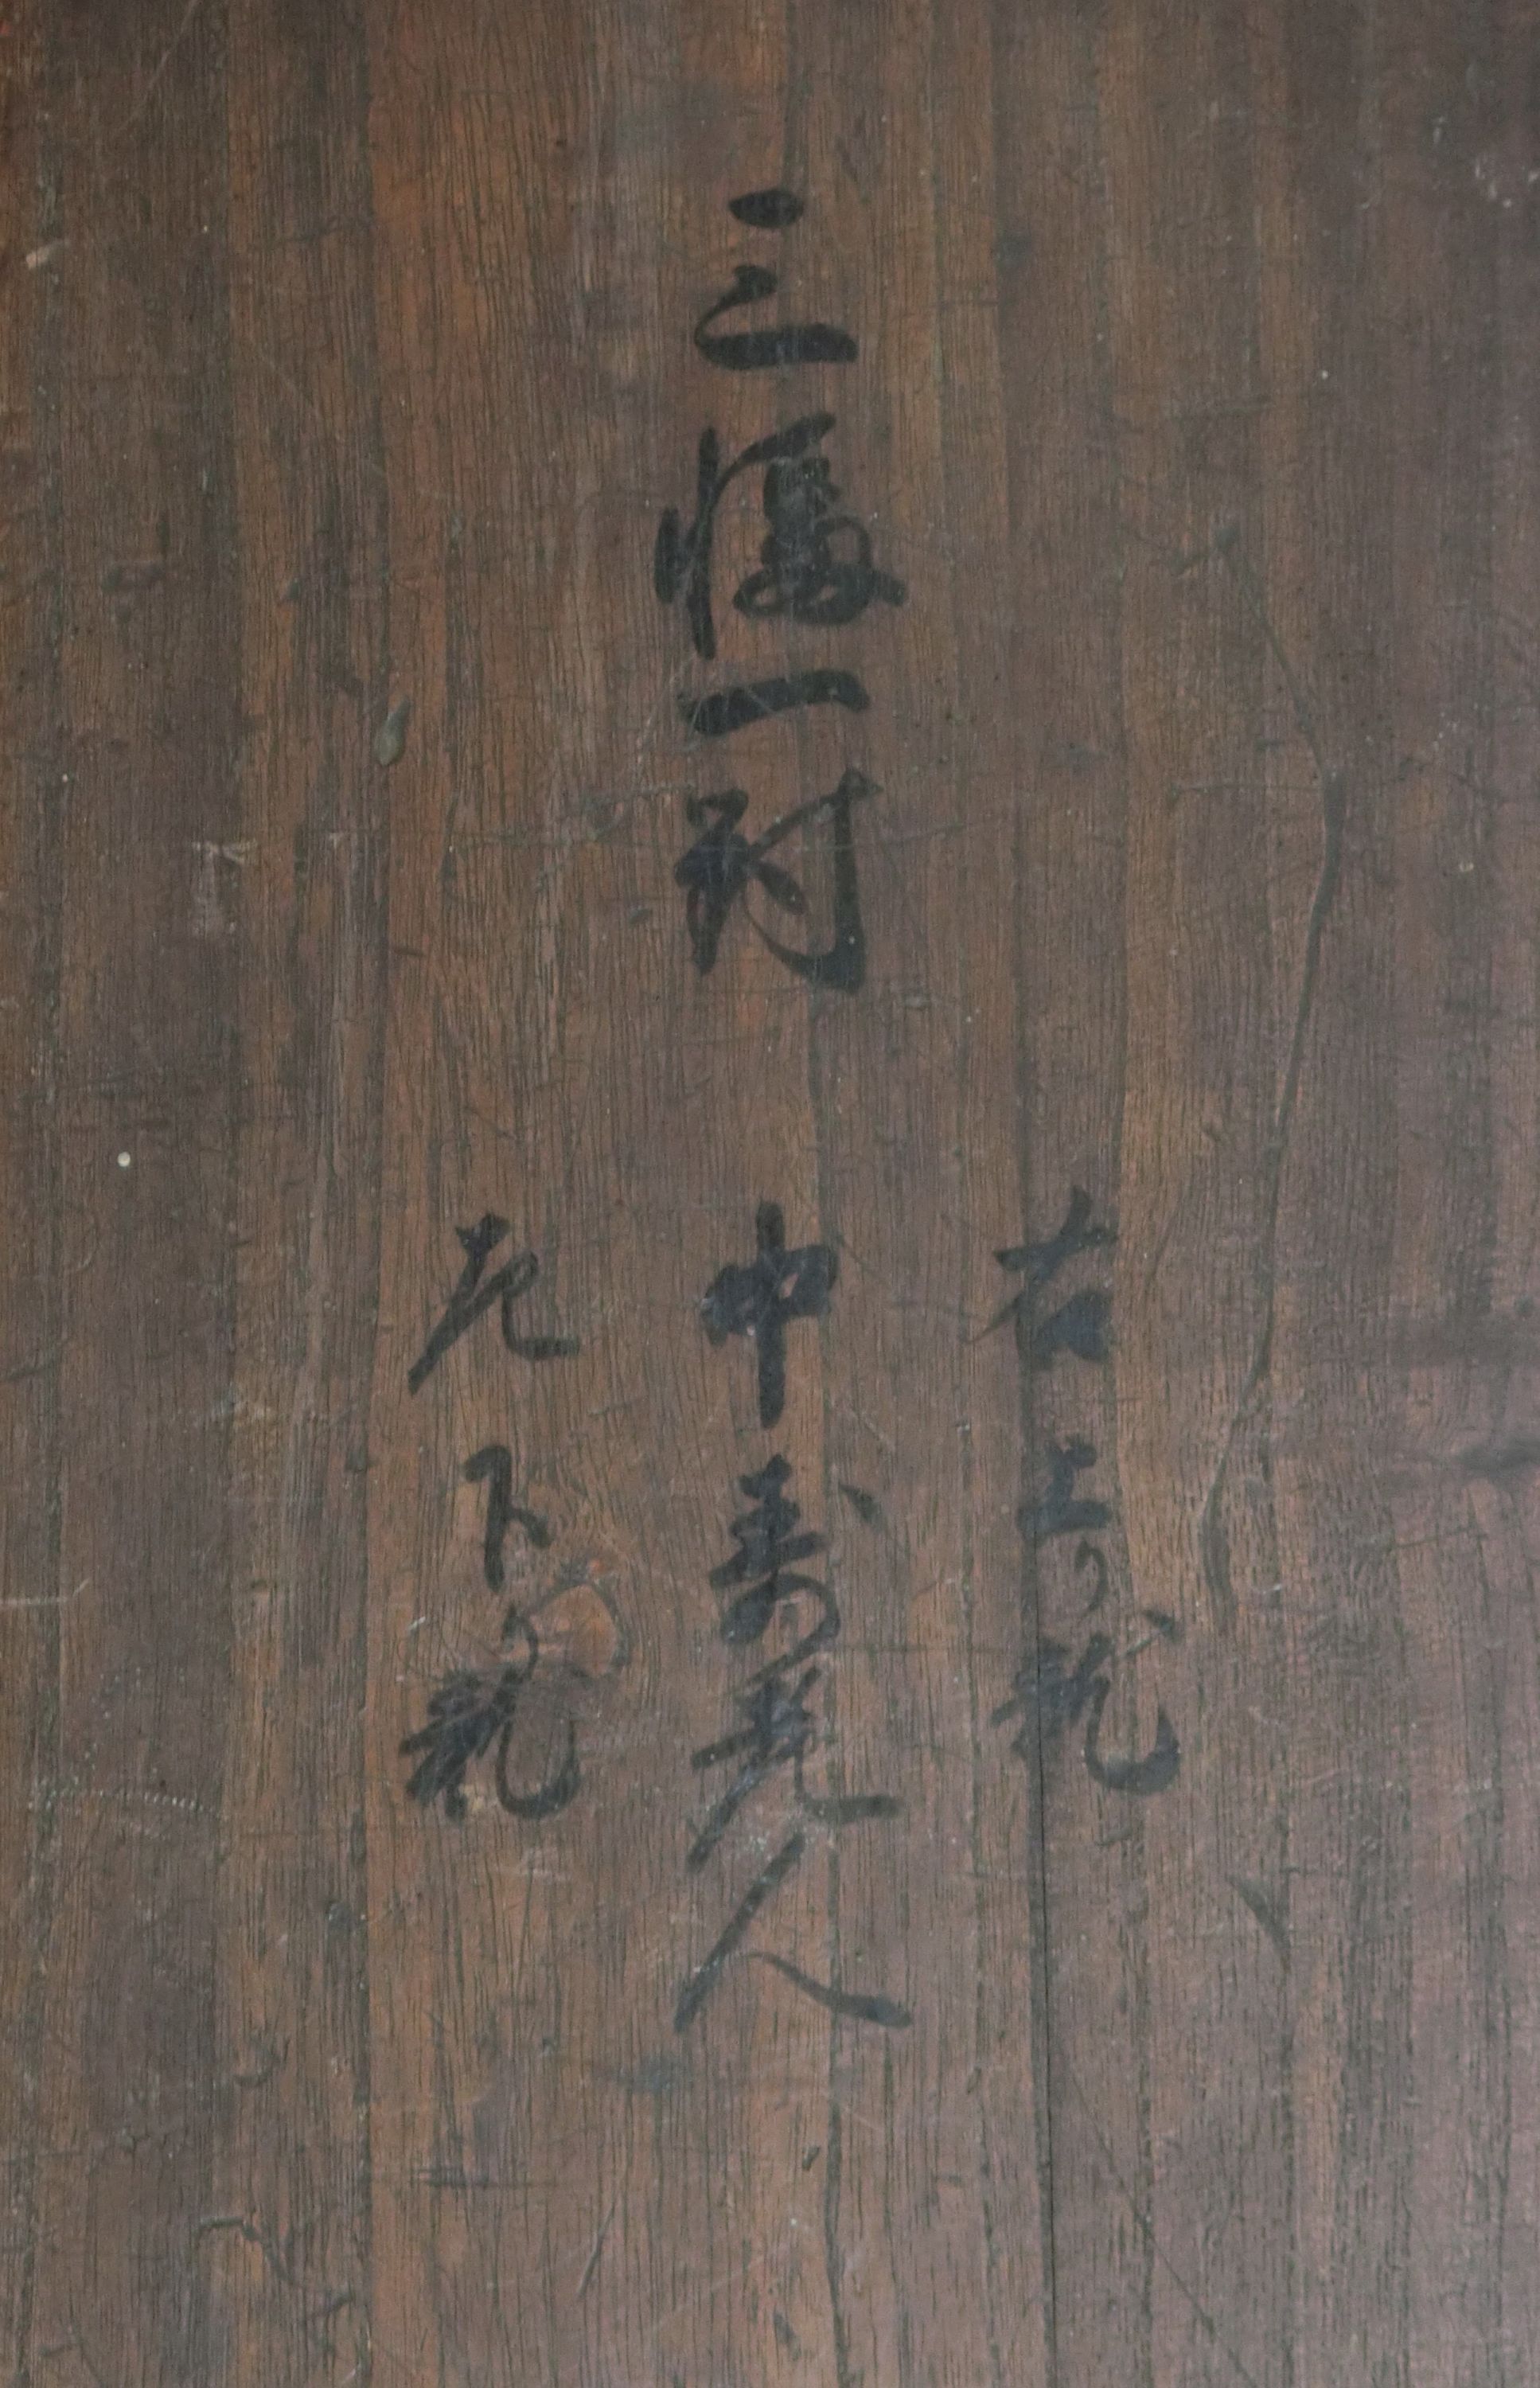 三幅一対
右 上り龍
中 寿老人
左 下り龍